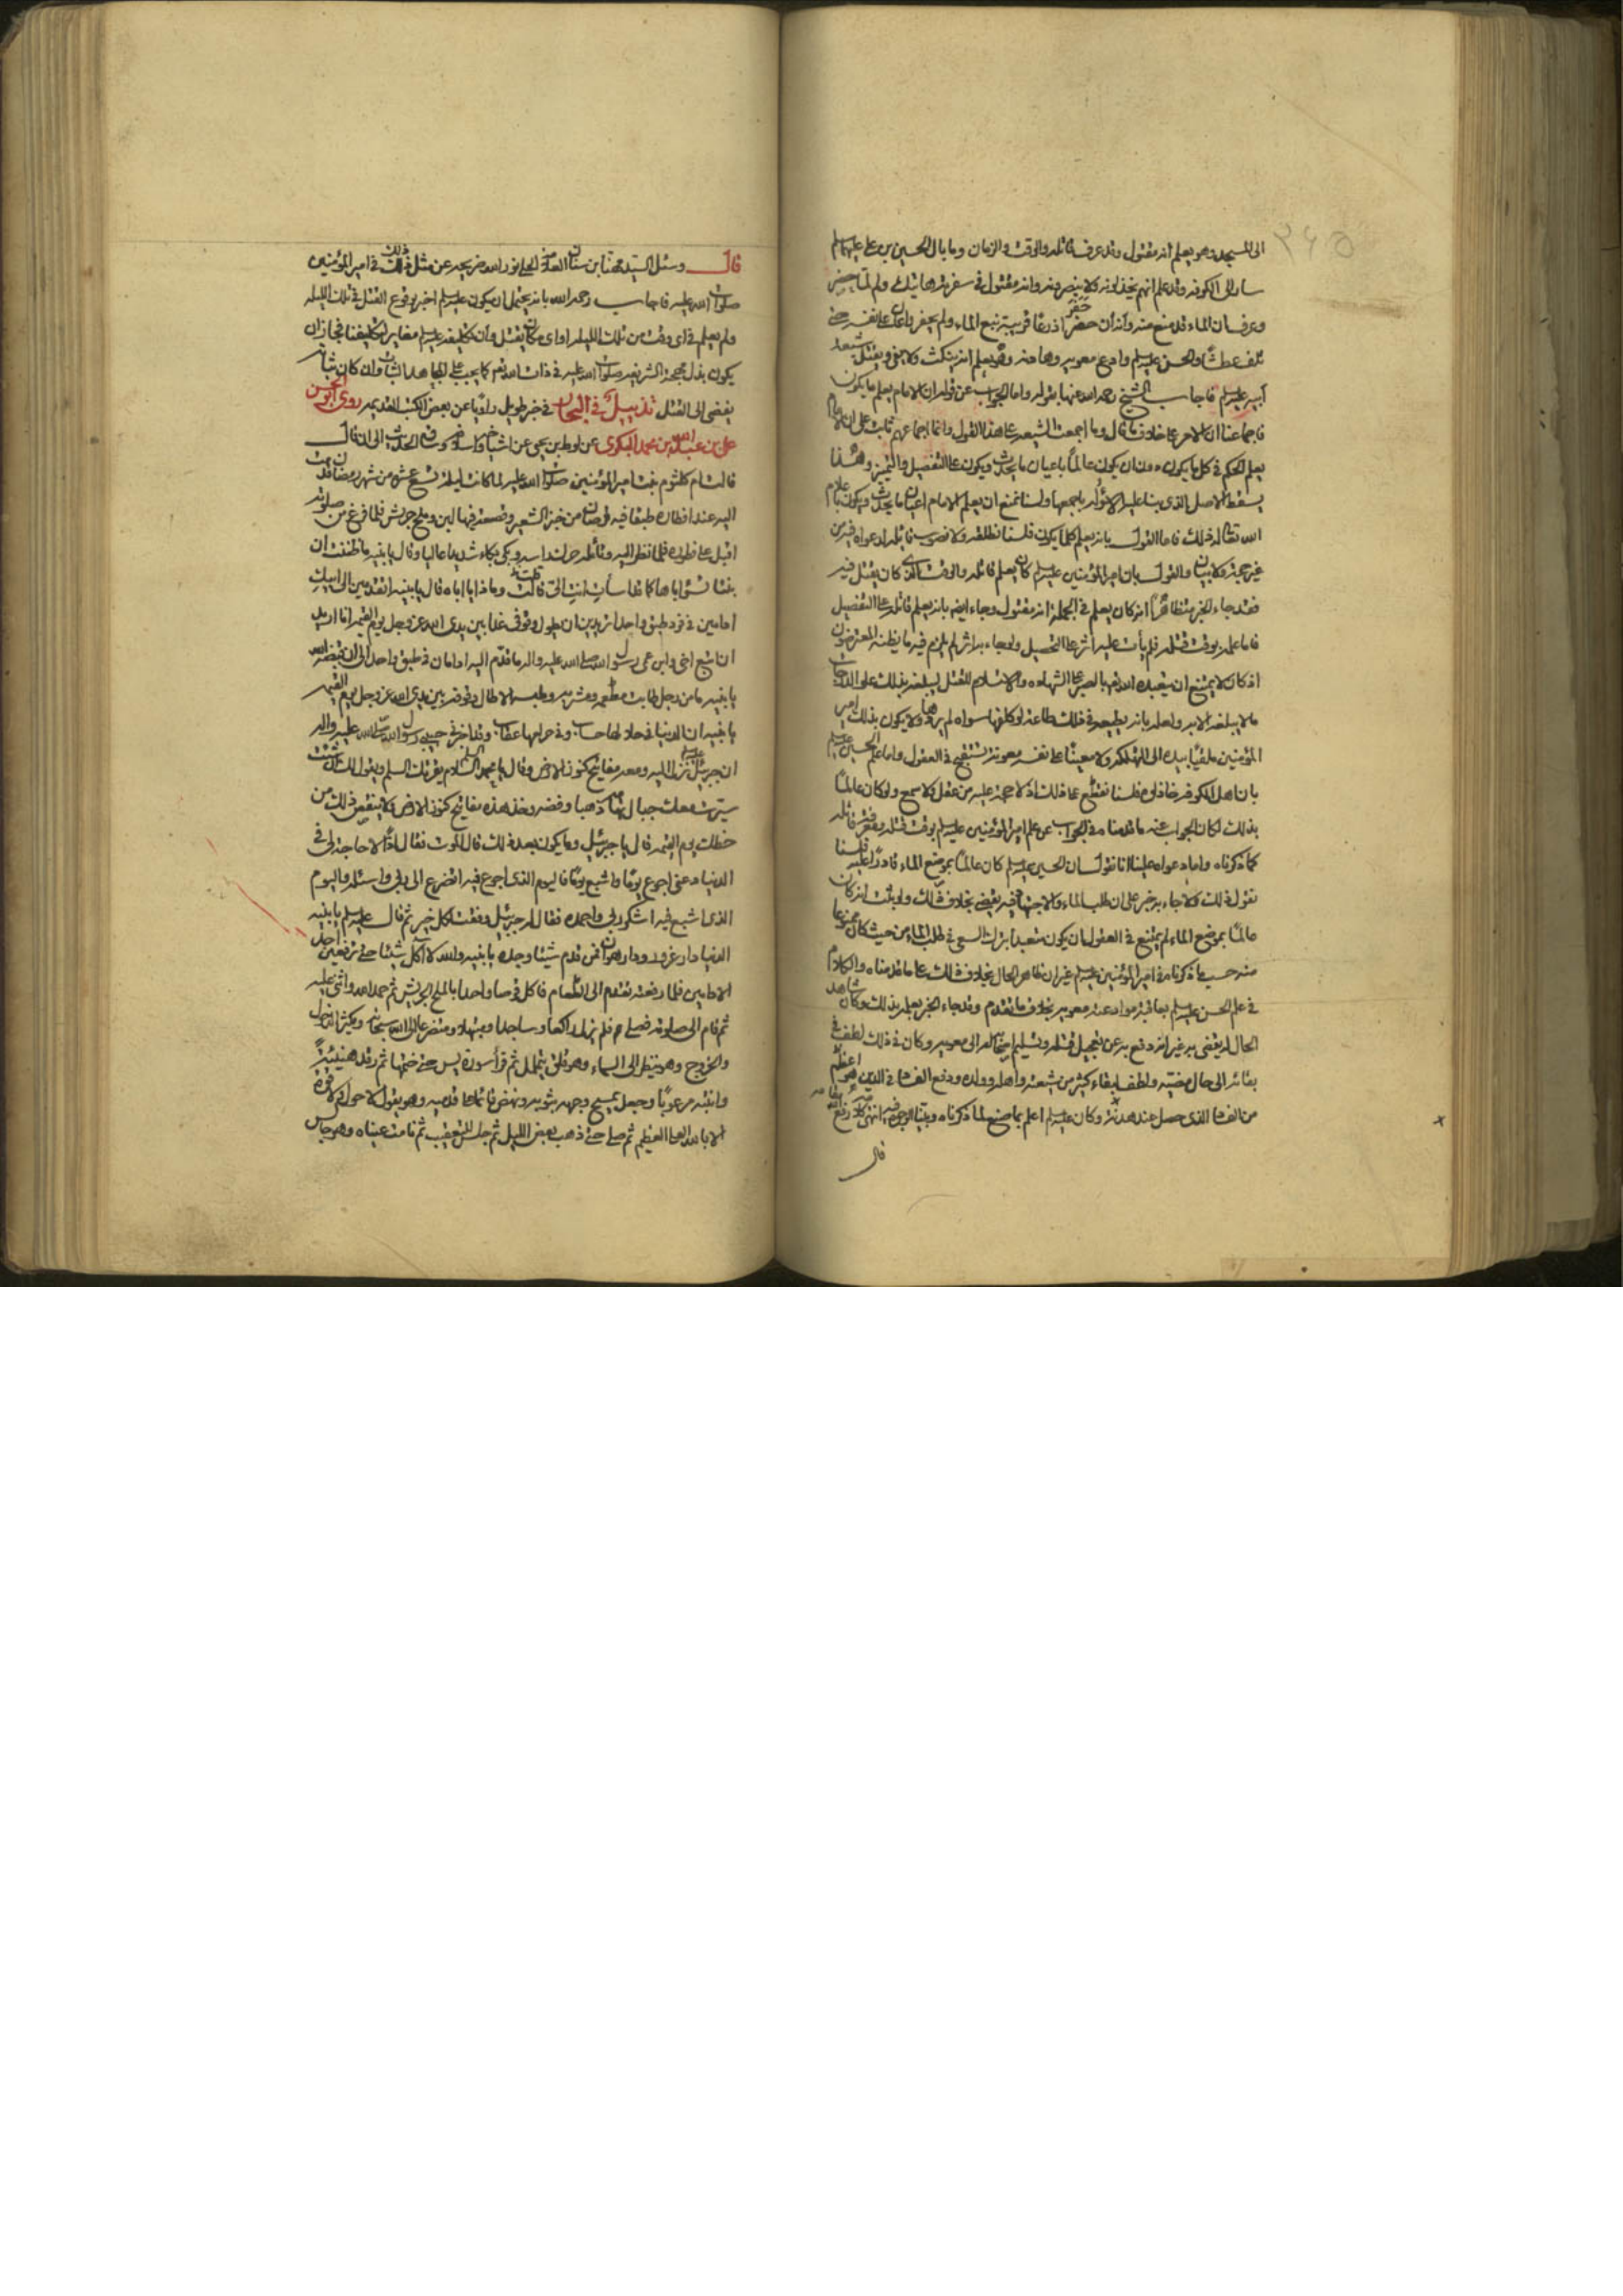 ۲۶۵
الى المسجد وهو يعلم انه مقتول وقد عرف قاتله والوقت والزمان وما بال الحسين بن علي عليهما السلم
سار الى الكوفه وقد علم انهم يخذلونه ولا ينصرونه وانه مقتول في سفرته هاتيك ولم لما حضر
وعرف ان الماء قد منع منه وانه ان حفر اذرعا قريبة نبع الماء ولم يحفر واعان على نفسه حتى
تلف عطشا والحسن عليه السلم وادع معويه وهادنه وهو يعلم انه ينكث ولا يفي ويقتل شيعة
ابيه عليه السلم فاجاب الشيخ رحمه الله عنها بقوله واما الجواب عن قوله ان الامام يعلم ما يكون
فاجماعنا ان الامر على خلاف ما قال وما اجمعت الشيعه على هذا القول وانما اجماعهم ثابت على ان الامام
يعلم الحكم في كل ما يكون دون ان يكون عالما باعيان ما يحدث ويكون على التفصيل والتمييز وهذا
يسقط الاصل الذي بنا عليه الاسؤله باجمعها ولسنا نمنع ان يعلم الامام اعيان ما يحدث ويكون باعلام
الله تعالى له ذلك فاما القول بانه يعلم كلما يكون فلسنا نطلقه ولا نصوب قايله لدعواه فيه من
غير حجة ولا بيان والقول بان امير المؤمنين عليه السلم كان يعلم قاتله والوقت الذي كان يقتل فيه
فقد جاء الخبر متظاهرا انه كان يعلم في الجمله انه مقتول وجاء ايضا بانه يعلم قاتله على التفصيل
فاما علمه بوقت قتله فلم يأت عليه اثر على التحصيل ولو جاء به اثر لم يلزم فيه ما يظنه المعترضون
اذ كان لا يمتنع ان يتعبده الله تعالى بالصبر على الشهاده والاستسلام للقتل ليبلغه بذلك علو الدرجات
ما لا يبلغه الا به ولعلمه بانه يطيعه في ذلك طاعة لو كلفها سواه لم يردها ولا يكون بذلك امير
المؤمنين ملقيا بيده الى التهلكه ولا معينا على نفسه معونة تستقبح في العقول واما علم الحسين عليه السلم
بان اهل الكوفه خاذلوه فلسنا نقطع على ذلك اذ لا حجة عليه من عقل ولا سمع ولو كان عالما
بذلك لكان الجواب عنه ما قدمناه في الجواب عن علم امير المؤمنين عليه السلم بوقت قتله ومعرفة قاتله
كما ذكرناه واما دعواه علينا انا نقول ان الحسين عليه السلم كان عالما بموضع الماء قادرا عليه فلسنا
نقول ذلك ولا جاء به خبر على ان طلب الماء والاجتهاد فيه يقضي بخلاف ذلك ولو ثبت انه كان
عالما بموضع الماء لم يمتنع في العقول ان يكون متعبدا بترك السعي في طلب الماء من حيث كان ممنوعا
منه حسب ما ذكرناه في امير المؤمنين عليه السلم غير ان ظاهر الحال بخلاف ذلك على ما قدمناه والكلام
في علم الحسن عليه السلم بعاقبة موادعته معويه بخلاف ما تقدم وقد جاء الخبر بعلمه بذلك وكان شاهد
الحال له يقضي به غير انه دفع به عن تعجيل قتله وتسليم اصحابه له الى معويه وكان في ذلك لطف في
بقائه الى حال مضيه ولطف لبقاء كثير من شيعته واهله وولده ودفع الفساد في الدين هو اعظم
من الفساد الذي حصل عند هدنته وكان عليه السلم اعلم بما صنع لما ذكرناه وبينا الوجه فيه انتهى كلامه رفع الله مقامه
قال
قال وسئل السيد مهنا بن سنان العلامه الحلي نور الله ضريحه عن مثل ذلك في امير المؤمنين
صلوات الله عليه فاجاب رحمه الله بانه يحتمل ان يكون عليه السلم اخبر بوقوع القتل في تلك الليله
ولم يعلم في اي وقت من تلك الليله او اي مكان يقتل وان تكليفه عليه السلم مغاير لتكليفنا فجاز ان
يكون بذل مهجته الشريفه صلوات الله عليه في ذات الله تعالى كما يجب على المجاهد الثبات وان كان ثباته
يفضي الى القتل تذييل في البحار في خبر طويل راويا عن بعض الكتب القديمه روى ابو الحسن
علي بن عبد الله بن محمد البكري عن لوط بن يحيى عن اشياخه واسلافه وساق الحديث الى ان قال
قالت ام كلثوم بنت امير المؤمنين صلوات الله عليه لما كانت ليلة تسع عشره من شهر رمضان قدمت
اليه عند افطاره طبقا فيه قرصان من خبز الشعير وقصعة فيها لبن وملح جريش فلما فرغ من صلوته
اقبل على فطوره فلما نظر اليه وتأمله حرك راسه وبكى بكاء شديدا عاليا وقال يا بنيه ما ظننت ان
بنتا تسوء اباها كما قد اسأت انت الي قالت وماذا يا اباه قال يا بنيه اتقدمين الى ابيك
ادامين في فرد طبق واحد اتريدين ان يطول وقوفي غدا بين يدي الله عز وجل يوم القيمه انا اريد
ان اتبع اخي وابن عمي رسول الله صلى الله عليه واله ما قدم اليه ادامان في طبق واحد الى ان قبضه الله
يا بنيه ما من رجل طاب مطعمه ومشربه وملبسه الا طال وقوفه بين يدي الله عز وجل يوم القيمه
يا بنيه ان الدنيا في حلالها حساب وفي حرامها عقاب وقد اخبرني حبيبي رسول الله صلى الله عليه واله
ان جبرئيل عليه السلم نزل اليه ومعه مفاتيح كنوز الارض وقال يا محمد السلام يقرئك السلم ويقول لك ان شئت
سيرت معك جبال تهامه ذهبا وفضه وخذ هذه مفاتيح كنوز الارض ولا ينقص ذلك من
حظك يوم القيمه قال يا جبرئيل وما يكون بعد ذلك قال الموت فقال اذا لا حاجة لي في
الدنيا دعني اجوع يوما واشبع يوما فاليوم الذي اجوع فيه اتضرع الى ربي واسئله واليوم
الذي اشبع فيه اشكر ربي واحمده فقال له جبرئيل وفقت لكل خير ثم قال عليه السلم يا بنيه
الدنيا دار غرور ودار هوان فمن قدم شيئا وجده يا بنيه والله لا آكل شيئا حتى ترفعين احد
الادامين فلما رفعته تقدم الى الطعام فاكل قرصا واحدا بالملح الجريش ثم حمد الله واثنى عليه
ثم قام الى صلوته فصلى ولم يزل راكعا وساجدا ومبتهلا ومتضرعا الى الله سبحانه ويكثر الدخول
والخروج وهو ينظر الى السماء وهو قلق يتململ ثم قرأ سورة يس حتى ختمها ثم رقد هنيئة
وانتبه مرعوبا وجعل يمسح وجهه بثوبه ونهض قائما على قدميه وهو يقول لا حول ولا قوة
الا بالله العلي العظيم ثم صلى حتى ذهب بعض الليل ثم جلس للتعقيب ثم نامت عيناه وهو جالس